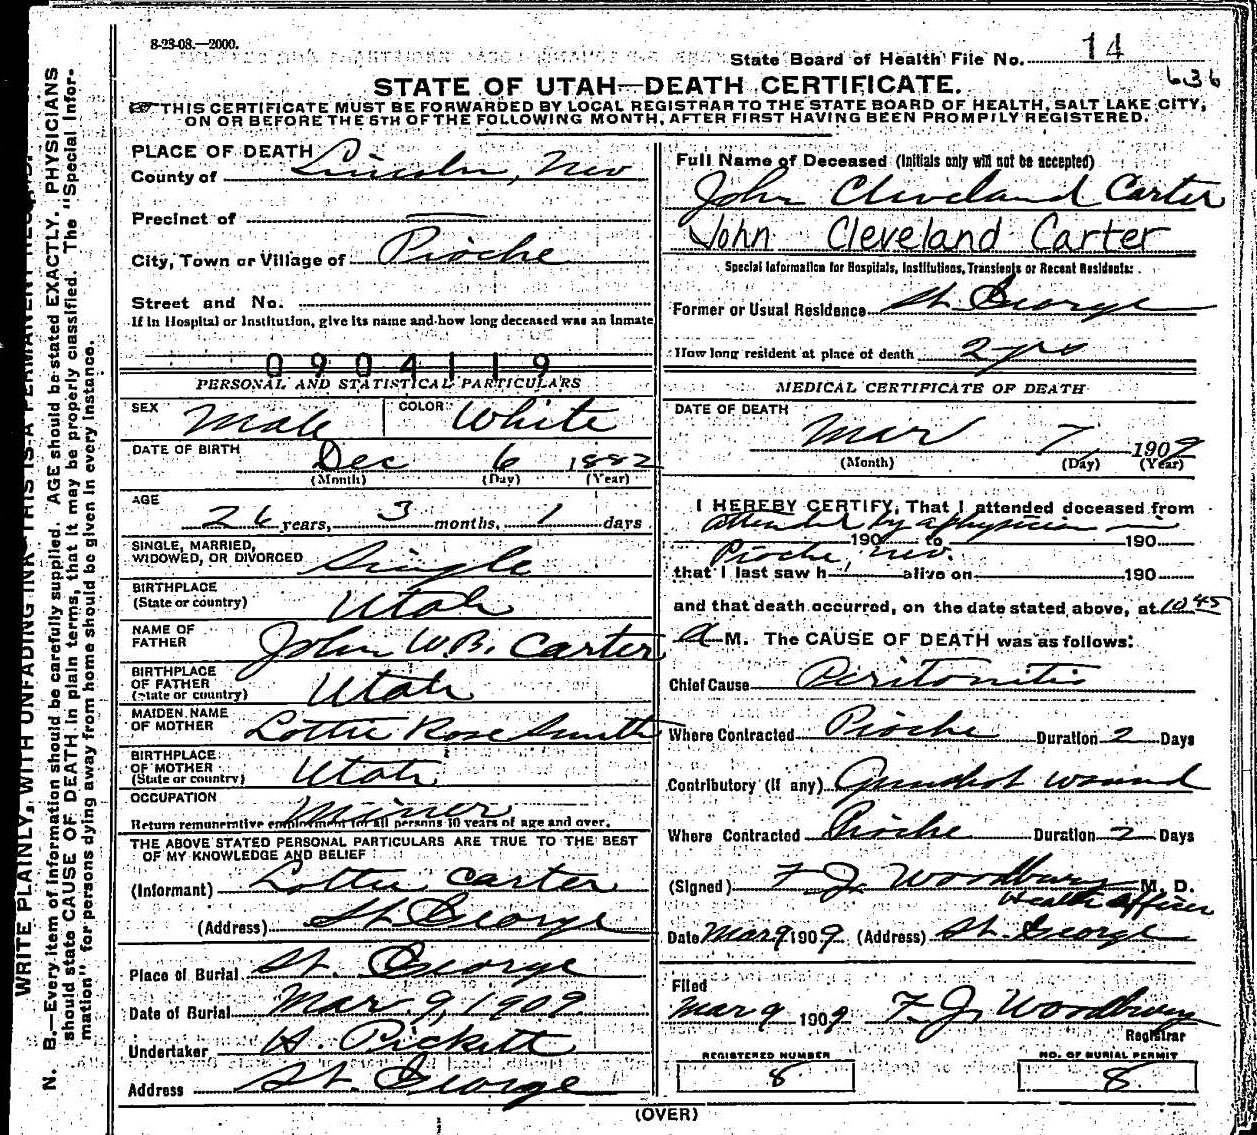 8-23-08.—2000.
State Board of Health File No. 14
636
STATE OF UTAH—DEATH CERTIFICATE.
THIS CERTIFICATE MUST BE FORWARDED BY LOCAL REGISTRAR TO THE STATE BOARD OF HEALTH, SALT LAKE CITY,
ON OR BEFORE THE 5TH OF THE FOLLOWING MONTH, AFTER FIRST HAVING BEEN PROMPILY REGISTERED.
PLACE OF DEATH
County of Lincoln, Nev
Precinct of —
City, Town or Village of Pioche
Street and No.
If in Hospital or Institution, give its name and how long deceased was an Inmate
0904119
PERSONAL AND STATISTICAL PARTICULARS
SEX Male COLOR White
DATE OF BIRTH Dec 6 1882
(Month) (Day) (Year)
AGE
26 years, 3 months, 1 days
SINGLE, MARRIED,
WIDOWED, OR DIVORCED Single
BIRTHPLACE
(State or country) Utah
NAME OF
FATHER John W.B. Carter
BIRTHPLACE
OF FATHER
(State or country) Utah
MAIDEN NAME
OF MOTHER Lottie Rose Smith
BIRTHPLACE
OF MOTHER
(State or country) Utah
OCCUPATION Miner
Return remunerative employment for all persons 10 years of age and over.
THE ABOVE STATED PERSONAL PARTICULARS ARE TRUE TO THE BEST
OF MY KNOWLEDGE AND BELIEF
(Informant) Lottie Carter
(Address) St. George
Place of Burial St. George
Date of Burial Mar. 9, 1909
Undertaker H. Pickett
Address St. George
Full Name of Deceased (Initials only will not be accepted)
John Cleveland Carter
John Cleveland Carter
Special Information for Hospitals, Institutions, Transients or Recent Residents:
Former or Usual Residence St. George
How long resident at place of death 2 yrs
MEDICAL CERTIFICATE OF DEATH
DATE OF DEATH
Mar 7 1909
(Month) (Day) (Year)
I HEREBY CERTIFY, That I attended deceased from
attended by a physician in
190 to 190
Pioche Nev.
that I last saw h alive on 190
and that death occurred, on the date stated above, at 10 45
a M. The CAUSE OF DEATH was as follows:
Chief Cause Peritonitis
Where Contracted Pioche Duration 2 Days
Contributory (if any) Gunshot wound
Where Contracted Pioche Duration 2 Days
(Signed) F J. Woodbury M. D.
Health Officer
Date Mar 9 1909 (Address) St. George
Filed
Mar 9 1909 F. J. Woodbury
Registrar
REGISTERED NUMBER
8
NO. OF BURIAL PERMIT
8
(OVER)
WRITE PLAINLY, WITH UNFADING INK—THIS IS A PERMANENT RECORD.
N. B.—Every item of information should be carefully supplied. AGE should be stated EXACTLY. PHYSICIANS
should state CAUSE OF DEATH in plain terms, that it may be properly classified. The "Special Infor-
mation" for persons dying away from home should be given in every instance.